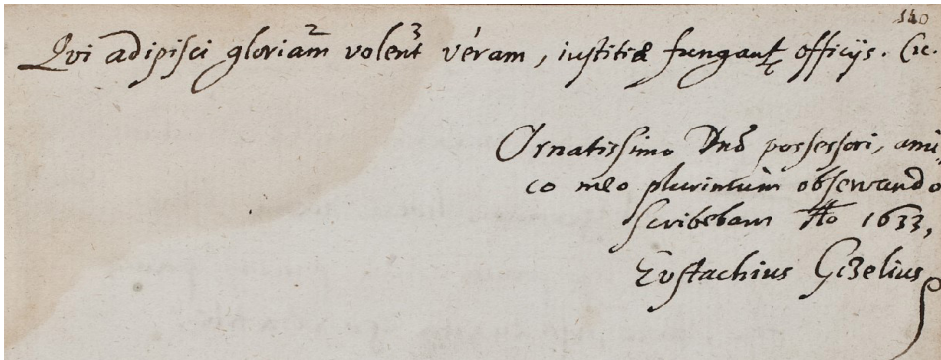 140
Qvi adipisci gloriam² volent³ veram, iustitiæ fungant officijs. Cic.
Ornatissimo Dno possessori, ami,
co meo plurimum observando
scribebam Ao 1633,
Eustachius Gizelius